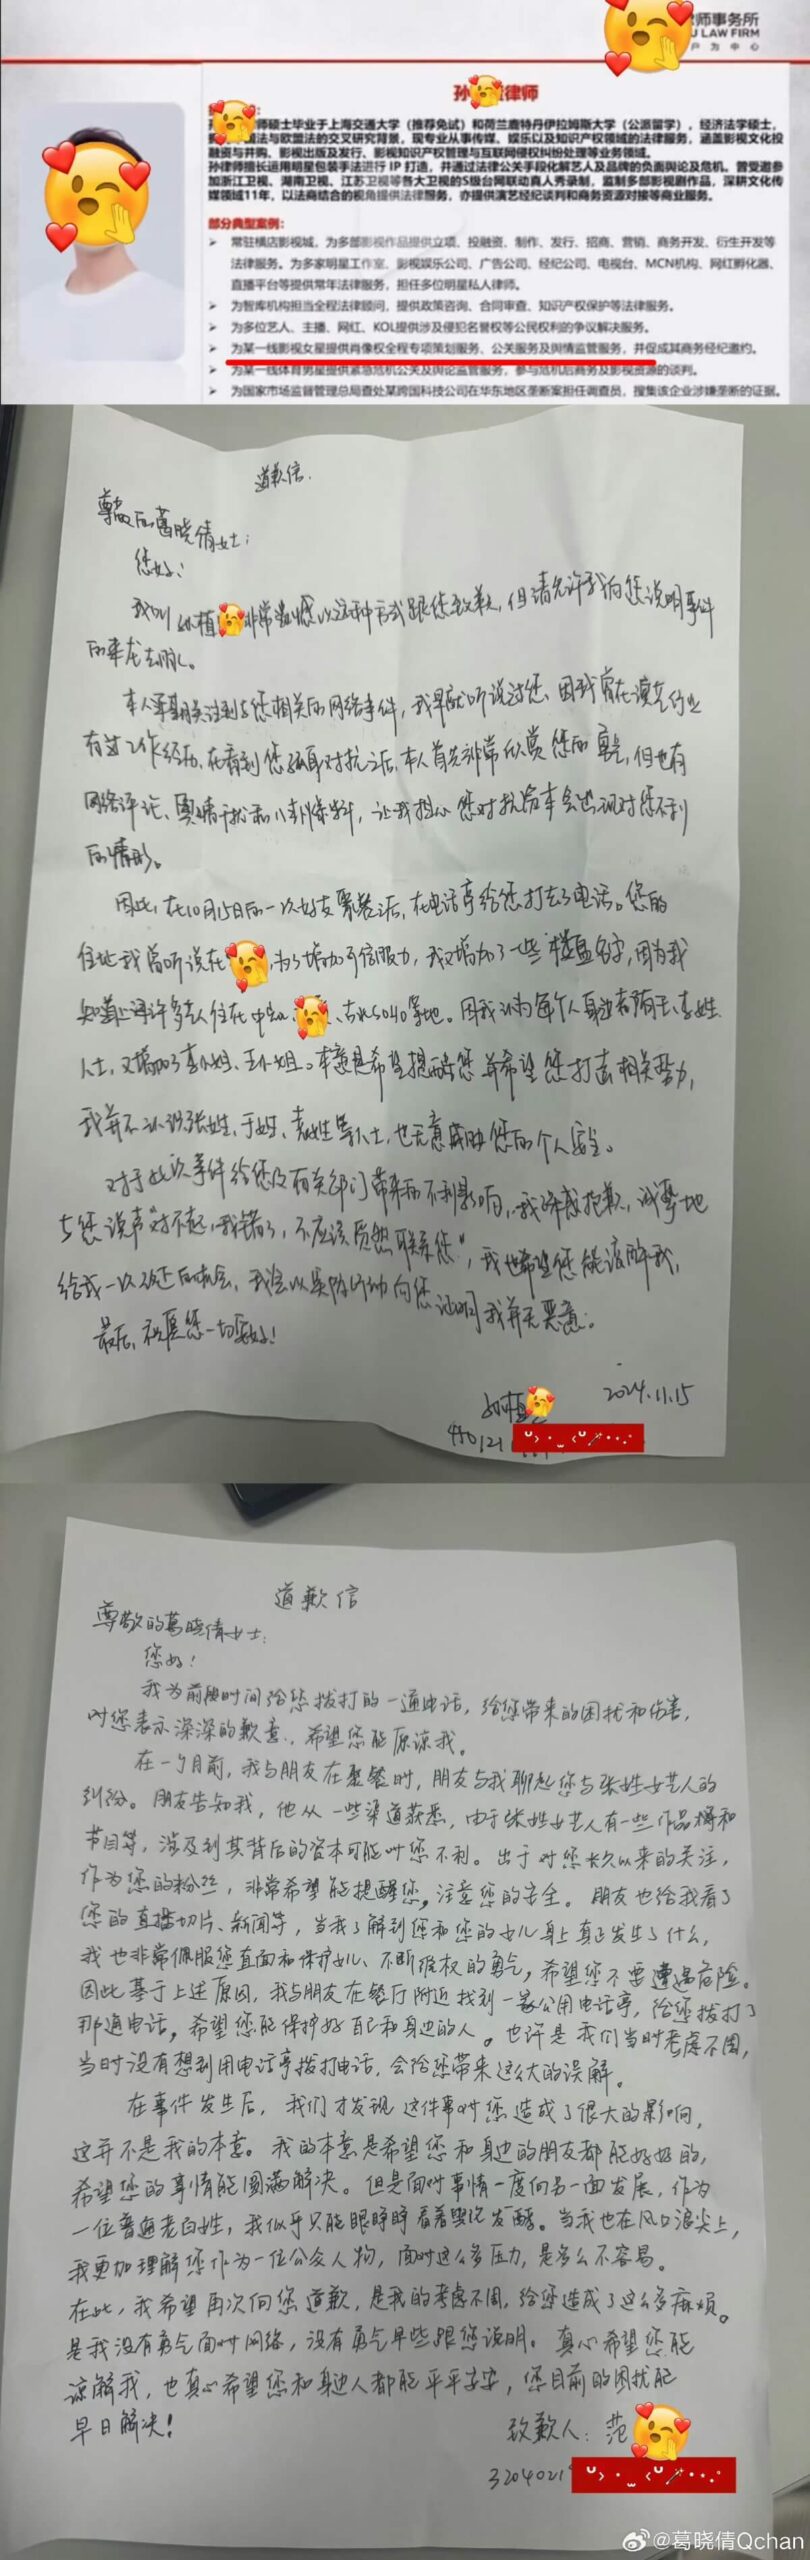 律师事务所
U LAW FIRM
户 为 中 心
孙 律师
师硕士毕业于上海交通大学（推荐免试）和荷兰鹿特丹伊拉姆斯大学（公派留学），经济法学硕士，
国法与欧盟法的交叉研究背景，现专业从事传媒、娱乐以及知识产权领域的法律服务，涵盖影视文化投
融资与并购、影视出版及发行、影视知识产权管理与互联网侵权纠纷处理等业务领域。
孙律师擅长运用明星包装手法进行 IP 打造，并通过法律公关手段化解艺人及品牌的负面舆论及危机。曾受邀参
加浙江卫视、湖南卫视、江苏卫视等各大卫视的S级台网联动真人秀录制，监制多部影视剧作品，深耕文化传
媒领域11年，以法商结合的视角提供法律服务，亦提供演艺经纪谈判和商务资源对接等商业服务。
部分典型案例：
常驻横店影视城，为多部影视作品提供立项、投融资、制作、发行、招商、营销、商务开发、衍生开发等
法律服务。为多家明星工作室、影视娱乐公司、广告公司、经纪公司、电视台、MCN机构、网红孵化器、
直播平台等提供常年法律服务，担任多位明星私人律师。
为智库机构担当全程法律顾问，提供政策咨询、合同审查、知识产权保护等法律服务。
为多位艺人、主播、网红、KOL提供涉及侵犯名誉权等公民权利的争议解决服务。
为某一线影视女星提供肖像权全程专项策划服务、公关服务及舆情监管服务，并促成其商务经纪邀约。
为某一线体育男星提供紧急危机公关及舆论监管服务，参与危机后商务及影视资源的谈判。
为国家市场监督管理总局查处某跨国科技公司在华东地区垄断案担任调查员，搜集该企业涉嫌垄断的证据。
道歉信.
尊敬的葛晓倩女士：
您好！
我叫孙植 非常以这种方式跟您致歉，但请允许我向您说明事件
的来龙去脉。
本人关注到与您相关的网络事件，我早就听说过您，因我曾在演艺行业
有过工作经历，在看到您孤身对抗之后，本人首先非常欣赏您的勇气，但也有
网络评论、舆情干扰和八卦爆料，让我担心您对抗资本会出现对您不利
的情形。
因此，在10月15日的一次好友聚餐之后，在电话亭给您打去了电话。您的
住址我曾听说在 ，为了增加可信服力，我又增加了一些楼盘名字，因为我
知道上海许多艺人住在中 、 、古北SOHO等地。因我认为每个人身边都有王、李姓
人士，又增加了李小姐、王小姐。本意是希望提醒您并希望您打击相关势力，
我并不认识张姓、于姓、袁姓等人士，也无意威胁您的个人安全。
对于此次事件给您及有关部门带来的不利影响，我深感抱歉，诚挚地
与您说声“对不起，我错了，不应该贸然联系您”，我也希望您能谅解我，
给我一次改正的机会，我会以实际行动向您证明我并无恶意。
最后，祝愿您一切安好！
孙植 2024.11.15
450121
道歉信
尊敬的葛晓倩女士：
您好！
我为前段时间给您拨打的一通电话，给您带来的困扰和伤害，
对您表示深深的歉意，希望您能原谅我。
在一个月前，我与朋友在聚餐时，朋友与我聊起您与张姓女艺人的
纠纷。朋友告知我，他从一些渠道获悉，由于张姓女艺人有一些作品和
节目等，涉及到其背后的资本可能对您不利。出于对您长久以来的关注，
作为您的粉丝，非常希望能提醒您，注意您的安全。朋友也给我看了
您的直播切片、新闻等，当我了解到您和您的女儿身上真正发生了什么，
我也非常佩服您直面和保护女儿、不断维权的勇气，希望您不要遭遇危险。
因此基于上述原因，我与朋友在餐厅附近找到一家公用电话亭，给您拨打了
那通电话，希望您能保护好自己和身边的人。也许是我们当时考虑不周，
当时没有想到用电话亭拨打电话，会给您带来这么大的误解。
在事件发生后，我们才发现这件事对您造成了很大的影响，
这并不是我的本意。我的本意是希望您和身边的朋友都能好好的，
希望您的事情能圆满解决。但是面对事情一度向另一面发展，作为
一位普通老百姓，我似乎只能眼睁睁看着舆论发酵。当我也在风口浪尖上，
我更加理解您作为一位公众人物，面对这么多压力，是多么不容易。
在此，我希望再次向您道歉，是我的考虑不周，给您造成了这么多麻烦。
是我没有勇气面对网络，没有勇气早些跟您说明。真心希望您能
谅解我，也真心希望您和身边人都能平平安安，您目前的困扰能
早日解决！
致歉人：范
3204021
@葛晓倩Qchan